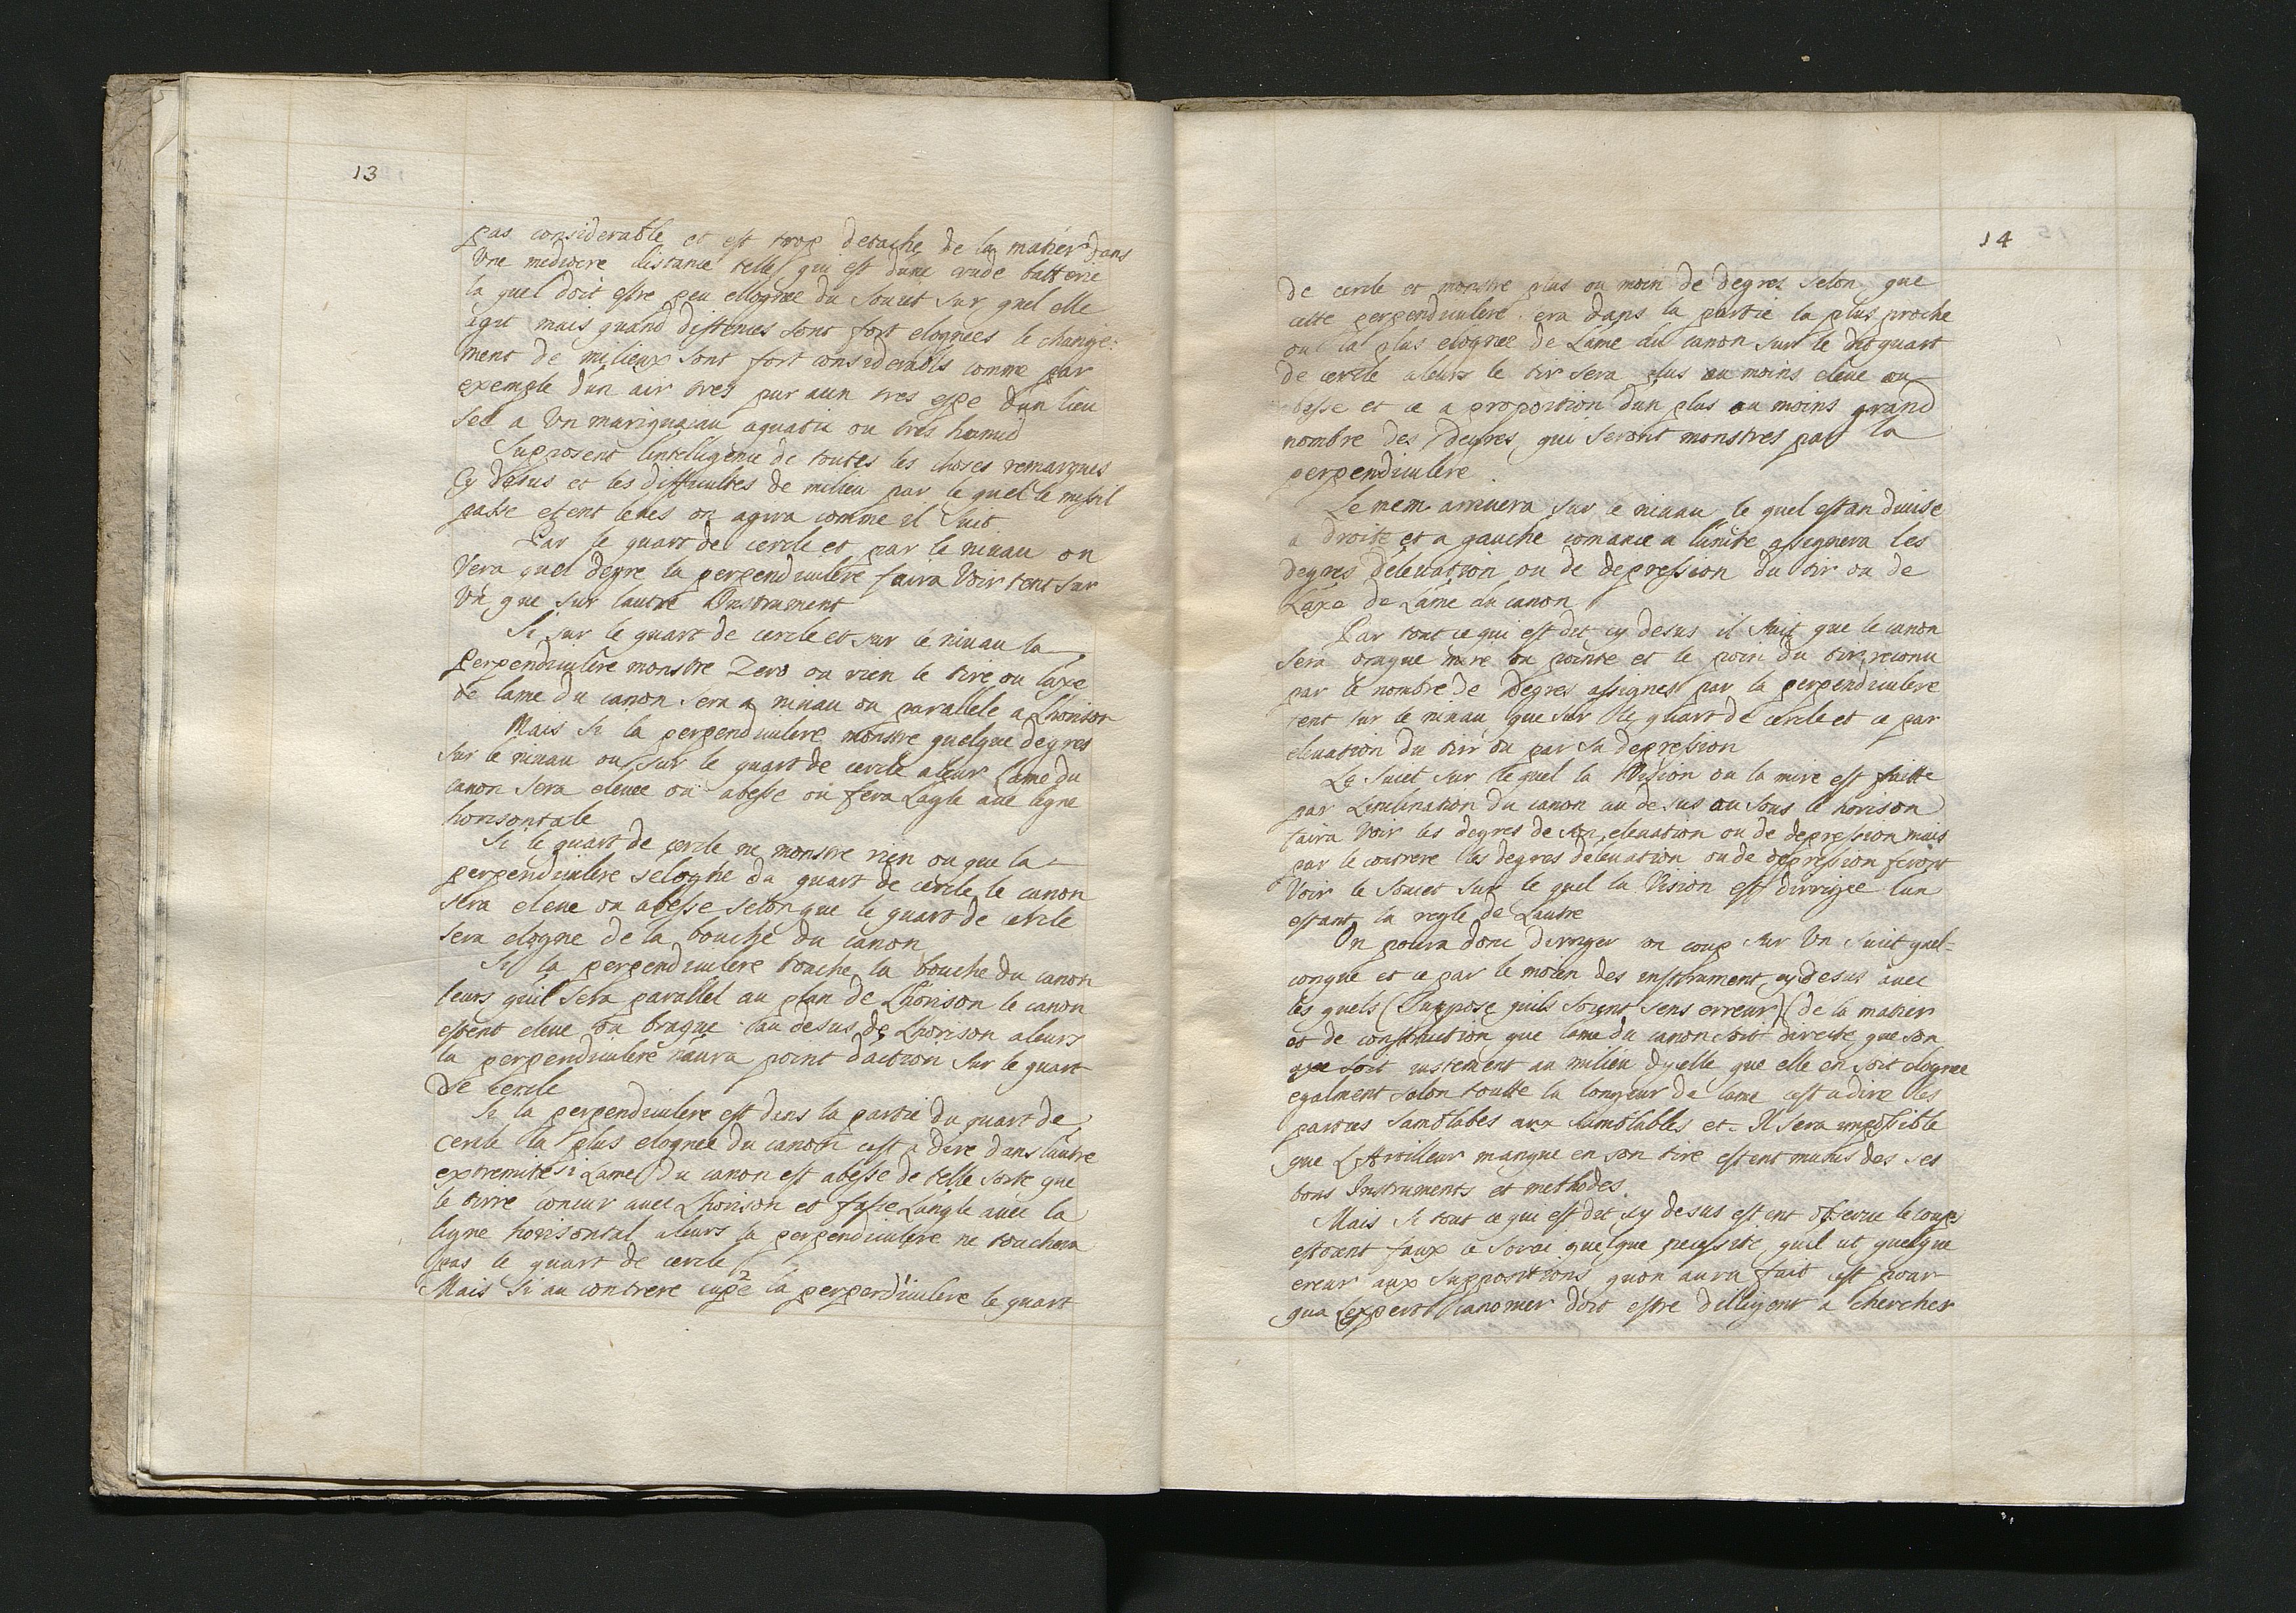 13
pas considerable et est trop detaché de la matier dans
Une mediocre distance telle qui est dune rude batterie
la quel doit estre peu ellognee du souiet sur quel elle
agit mais quand distences sont fort elognees le change:
ment de milieux sont fort considerabls comme par
exemple dun air tres pur aun tres espe dun lieu
sec a Un marigua au aquatic ou tres humid
Suposent lintelligence de toutes les choses remarques
Cy desus et les difficultes de milieu par le quel le missil
passe etent levés on agira comme il suit
Par le quart de cercle et par le niuau on
Vera quel degre la perpendiculere faira Voir tent sur
Un que sur lautre Instrument
Si sur le quart de cercle et sur le niuau la
Perpendiculere monstre Zero ou rien le tire ou laxe
de lame du canon sera a niuau ou parallele a Lhorison
Mais si la perpendiculere monstre quelque degres
Sur le niuau ou sur le quart de cercle aleur lame du
canon sera eleuee ou abesse ou fera Lagle aue legne
horisontale
Si le quart de cercle ne monstre rien ou que la
perpendiculere selogne du quart de cercle le canon
sera eleue ou abesse selon que le quart de cercle
sera elogne de la bouche du canon
Si la perpendiculere touche la bouche du canon
leurs quil sera parallel au plan de Lhorison le canon
estent eleue ou braque au desus de Lhorison aleurs
la perpendiculere naura point daction sur le quart
De cercle
Si la perpendiculere est dens la partie du quart de
cercle la plus elognee du canon cest a dire dans lautre
extremite si Lame du canon est abesse de telle sorte que
le tirre concur auec Lhorison et fasse Langle auec la
ligne horisontal aleurs la perpendiculere ne touchera
pas le quart de cercle
Mais si au contrere cupe la perperdiculere le quart
14
de cercle et monstre plus ou moin de degres selon que
cette perpendiculere era dans la partie la plus proche
ou la plus elognee de Lame du canon sur le dit quart
de cercle aleurs le tir sera plus ou moins eleue ou
besse et ce a proportion dun plus ou moins grand
nombre des degres qui seront monstres par la
perpendiculere
Le mem arriuera sur le niuau le quel estan diuise
a droite et a gauche comance a lunite assignera les
degres deleuation ou de depression du tir ou de
Laxe de Lame du canon
Par tout ce qui est dit cy desus il suit que le canon
sera braque mire ou pointe et le poin du tir reconu
par le nombre de Degres assignes par la perpendiculere
tent sur le niuau que sur le quart de cercle et ce par
eleuation du tirr ou par sa depression
Le suiet sur le quel la Vision ou la mire est faitte
par Linclination du canon au desus ou sous le horison
faira Voir les degres de son eleuation ou de depression mais
par le contrere les degres deleuation ou de depression feront
Voir le souiet sur le quel la Vision est dirrigee lun
estant la regle de Lautre
On poura donc dirriger un coup sur Un suiet quel=
conque et ce par le moien des instrument cy desus auec
les quels (Suppose quils soient sens erreur) (de la matier
et de construction que lame du canon soit directe que son
axe soit iustement au milieu dycelle que elle en soit elognee
egalment selon toutte la longeur de lame cest a dire les
parties samblabes aux samblables et. Il sera impossible
que LArtilleur manque en son tire estent munis des ses
bons Instruments et methodes.
Mais si tout ce qui est dit cy desus estent obserue le coups
estoient faux ce sorai quelque necessite quil ut quelque
ereur aux suppositions quon aura fait cest pour
qua Lexpert canonier doit estre dilligent a chercher